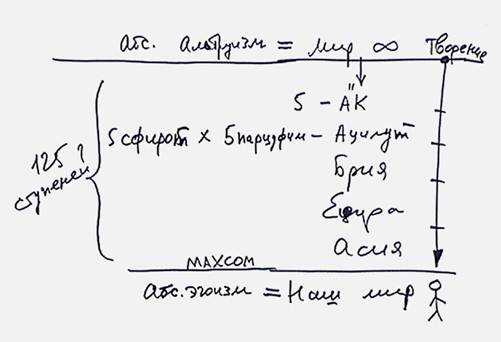 абс. альтруизм = мир ∞ Творение
5 - АК
5 сфирот x 5 парцуфим - Ацилут
125 ступеней
Брия
Ецира
Асия
МАХСОМ
абс. эгоизм = Наш мир